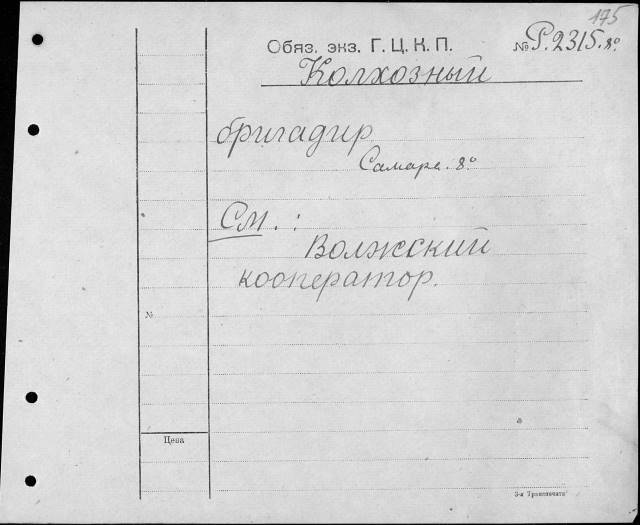 175
Обяз. экз. Г. Ц. К. П. № Р. 2315. 8º
Колхозный
бригадир
Самара. 8º
См. :
Волжский
кооператор.
№
Цена
3-я Транспечать